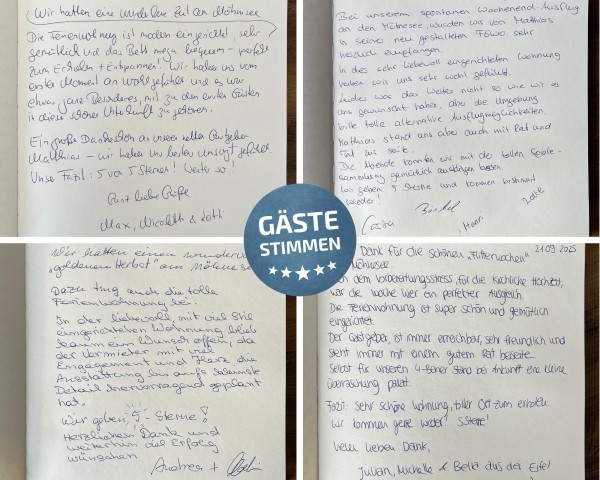 Wir hatten eine wundervolle Zeit am Möhnesee
Die Ferienwohnung ist modern eingerichtet, sehr
gemütlich und das Bett mega bequem - perfekt
zum Erholen + Entspannen! Wir haben uns vom
ersten Moment an wohlgefühlt und es war
etwas ganz Besonderes, mit zu den ersten Gästen
in dieser schönen Unterkunft zu gehören.
Ein großes Dankeschön an unseren netten Gastgeber
Matthias - wir haben uns bestens umsorgt gefühlt.
Unser Fazit: 5 von 5 Sternen! Weiter so!
Ganz liebe Grüße
Max, Nicoletta & Lotti
Bei unserem spontanen Wochenend-Ausflug
an den Möhnesee, wurden wir von Matthias
in seiner neu gestalteten FeWo sehr
herzlich empfangen.
In der sehr liebevoll eingerichteten Wohnung
haben wir uns sehr wohl gefühlt.
Leider war das Wetter nicht so wie wir es
uns gewünscht haben, aber die Umgebung
bietet tolle alternative Ausflugmöglichkeiten.
Matthias stand uns aber auch mit Rat und
Tat zur Seite.
Die Abende konnten wir mit der tollen Spiele-
sammlung gemütlich ausklingen lassen.
Wir geben 5 Sterne und kommen bestimmt
wieder!
GÄSTE
STIMMEN
Wir hatten einen wundervollen
"goldenen Herbst" am Möhnesee
Dazu trug auch die tolle
Ferienwohnung bei.
In der liebevoll, mit viel Stil
eingerichteten Wohnung blieb
kaum ein Wunsch offen, da
der Vermieter mit viel
Engagement und Herz die
Ausstattung bis aufs kleinste
Detail hervorragend geplant
hat.
Wir geben 5 Sterne!
Herzlichen Dank und
weiterhin viel Erfolg
wünschen
Andrea +
Dank für die schönen "Flitterwochen" 21.09.2025
Möhnesee.
dem Vorbereitungsstress, für die kirchliche Hochzeit,
war die Woche hier ein perfekter Ausgleich.
Die Ferienwohnung ist super schön und gemütlich
eingerichtet.
Der Gastgeber, ist immer erreichbar, sehr freundlich und
steht immer mit einem gutem Rat beiseite.
Selbst für unseren 4-Beiner stand bei Ankunft eine kleine
Überraschung parat.
Fazit: sehr schöne Wohnung, toller Ort zum erholen.
Wir kommen gerne wieder! 5 Sterne!
Vielen lieben Dank,
Julian, Michelle & Bella aus der Eifel